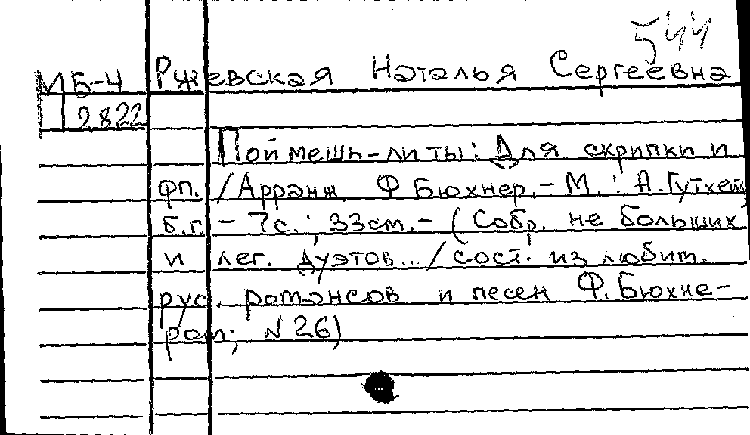 544
МБ-4 Ржевская Наталья Сергеевна
12822
Поймешь-ли ты: Для скрипки и
фп. / Арранж. Ф Бюхнер. - М. : А. Гутхейл
б.г. - 7с. ; 33см. - ( Собр. не больших
и лег. дуэтов.. / сост. из любит.
рус. романсов и песен Ф. Бюхне-
ром; N 26)